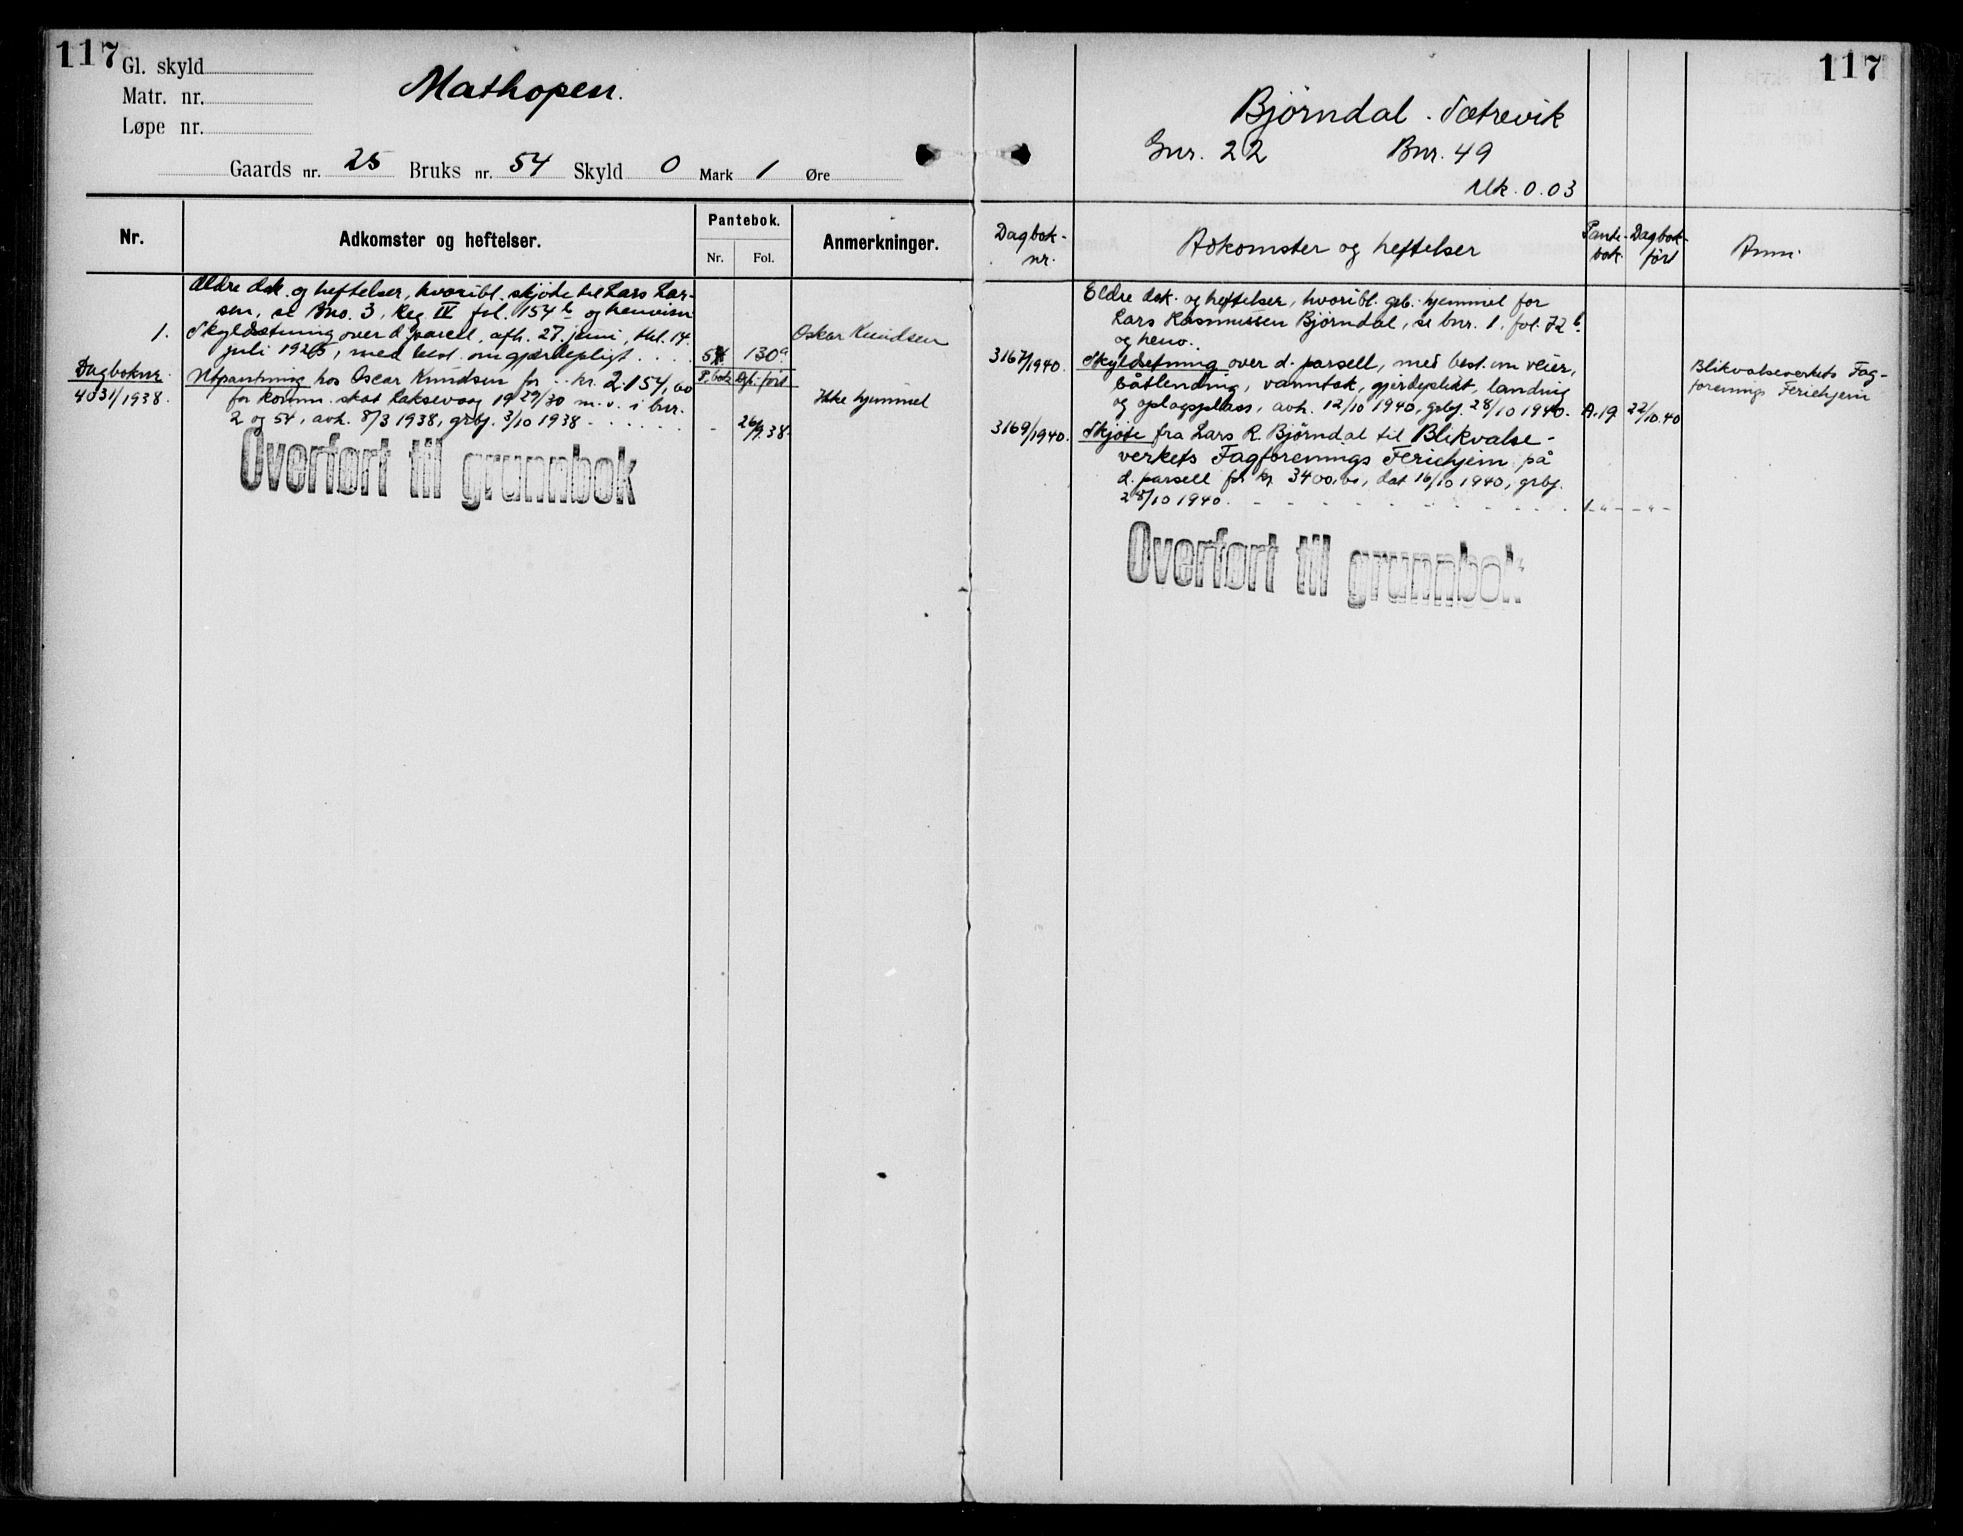 117
Gl. skyld
Matr. nr.
Løpe nr.
Mathopen.
Gaards nr. 25 Bruks nr. 54 Skyld 0 Mark 1 Øre
Nr.
Adkomster og heftelser.
Pantebok.
Nr. Fol.
Anmerkninger.
Ældre dok. og heftelser, hvoribl. skjøte til Lars Lar-
sen, se Bno. 3, Reg. IV fol. 154 b og henvisn
1. Skyldsetning over d. parcel, afh. 27. juni, thl. 14.
juli 1925, med best. om gjærdepligt . . . . 54 130a
Oskar Knudsen
P.bok Dgb. ført
Dagboknr.
4031/1938.
Utpantning hos Oscar Knudsen for kr. 2.154,00
for komm. skat Laksevaag 1929/30 m.v. i bnr.
2 og 54, avh. 8/3 1938, grbj. 3/10 1938 - . . . . . . - 26/9 38-
Ikke hjemmel
Overført til grunnbok
117
Bjørndal - Sætrevik
Gnr. 22 Bnr. 49
Mk. 0.03
Dagbok-
nr.
Adkomster og heftelser
Pante-
bok
Dagbok-
ført
Anm.
Eldre dok. og heftelser, hvoribl. geb. hjemmel for
Lars Rasmussen Bjørndal, se bnr. 1, fol. 72 b
og henv.
3167/1940. Skyldsetning over d. parsell, med best. om veier,
båtlending, vanntak, gjerdeplikt, landing
og oplagsplass, avh. 12/10 1940, grbj. 28/10 1940. A.19 22/10.40
Blikvalseverkets Fag-
forenings Feriehjem
3169/1940. Skjøte fra Lars R. Bjørndal til Blikvalse-
verkets Fagforenings Feriehjem på
d. parsell for kr. 3400,00, dat 16/10 1940, grbj.
28/10 1940. - - - - - - - - - . . . . -"- - -"-
Overført til grunnbok